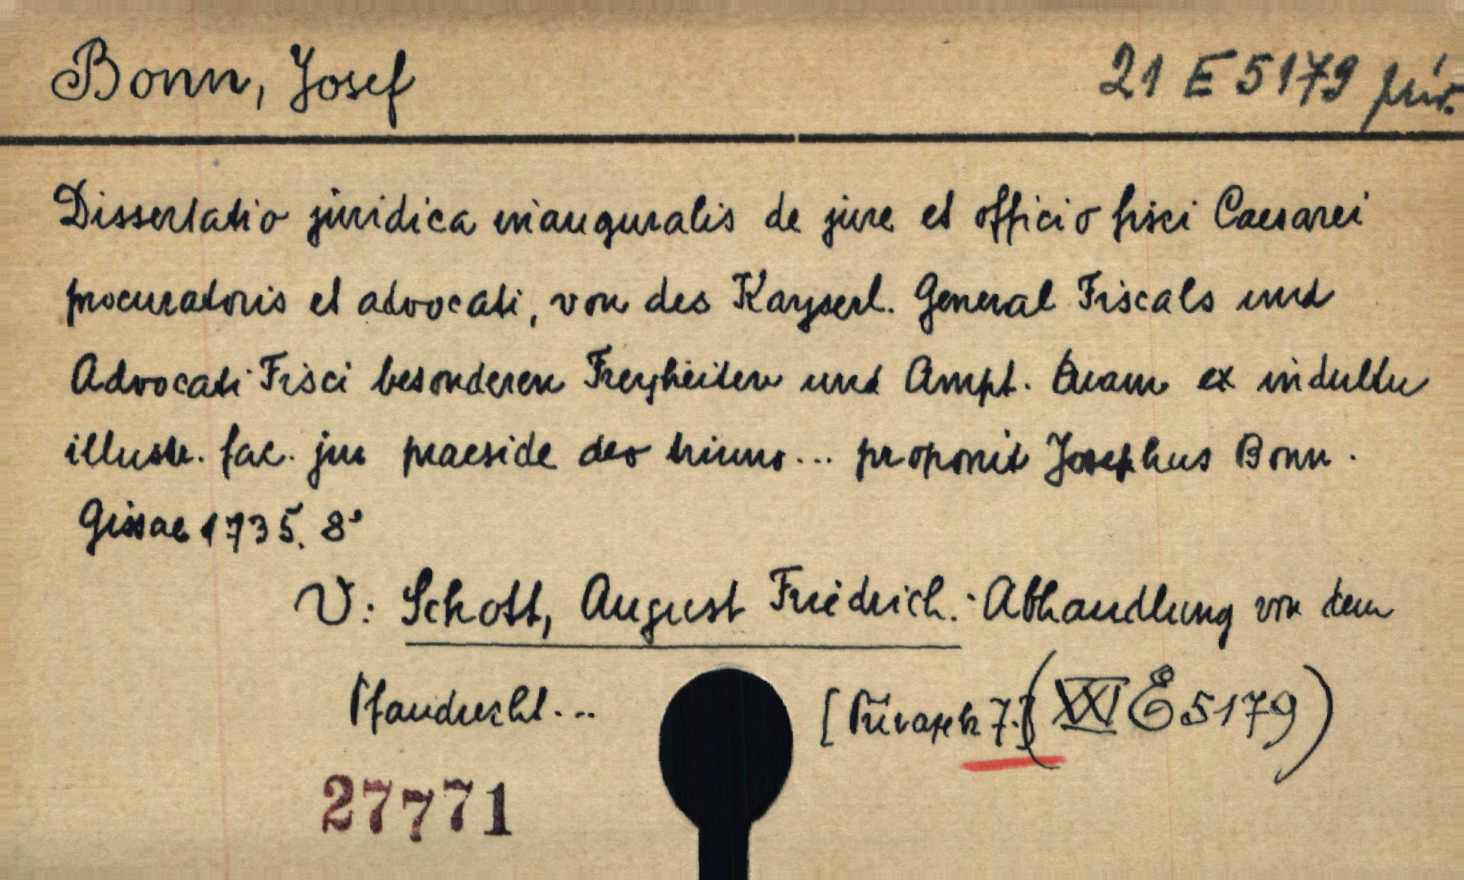 Bonn, Josef 21 E 5179 přív.
Dissertatio juridica inauguralis de jure et officio fisci Caesarei
procuratoris et advocati, von des Kayserl. General Fiscals und
Advocati Fisci besonderen Freyheiten und Ampt. Quam ex indultu
illustr. fac. jur praeside deo triuno... proponit Josephus Bonn.
Gissae 1735. 8°
V: Schott, August Friedrich: Abhandlung von dem
Pfandrecht... [Přívazek 7.] (XXI E 5179)
27771